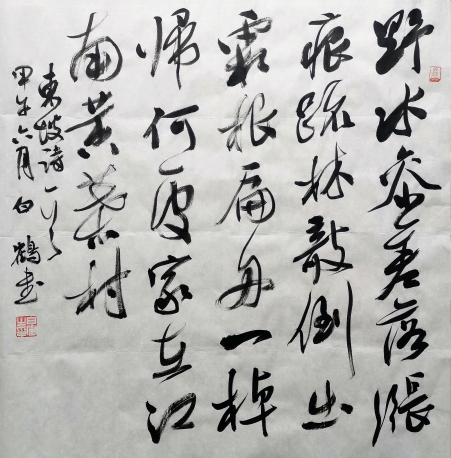 野水参差落漲
痕疏林敧倒出
霜根扁舟一棹
歸何處家在江
南黄葉村
東坡詩一首
甲午六月白鶴書